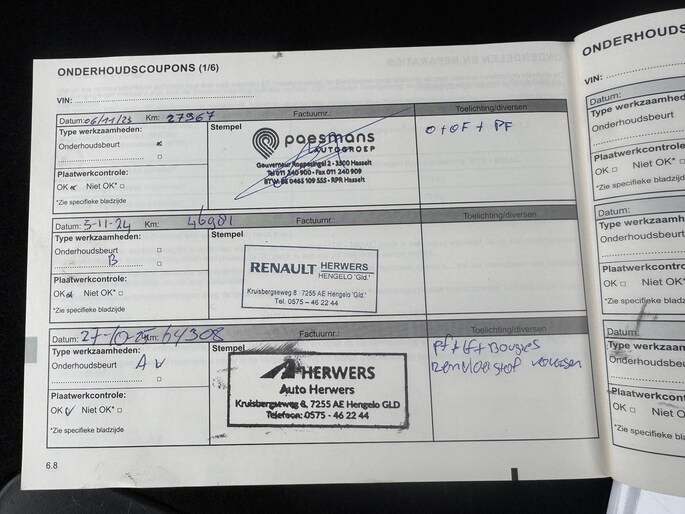 ONDERHOUDSCOUPONS (1/6)
VIN:
Datum: 06/11/23 Km: 27967 Factuurnr.: Toelichting/diversen
Type werkzaamheden:
Onderhoudsbeurt
Plaatwerkcontrole:
OK Niet OK*
*Zie specifieke bladzijde
Stempel
paesmans
AUTOGROEP
Gouverneur Roppesingel 2 - 3500 Hasselt
Tel 011 240 900 - Fax 011 240 909
BTW-BE 0463 109 555 - RPR Hasselt
O + OF + PF
Datum: 5-11-24 Km: 46981 Factuurnr.: Toelichting/diversen
Type werkzaamheden:
Onderhoudsbeurt
B
Plaatwerkcontrole:
OK Niet OK*
*Zie specifieke bladzijde
Stempel
RENAULT HERWERS
HENGELO 'Gld.'
Kruisbergseweg 8 7255 AE Hengelo 'Gld.'
Tel. 0575 - 46 22 44
Datum: 27-10-25 Km: 64308 Factuurnr.: Toelichting/diversen
Type werkzaamheden:
Onderhoudsbeurt A
Plaatwerkcontrole:
OK Niet OK*
*Zie specifieke bladzijde
Stempel
HERWERS
Auto Herwers
Kruisbergseweg 8, 7255 AE Hengelo GLD
Telefoon: 0575 - 46 22 44
Pf + If + Bougies
remvloeistof verversen
6.8
ONDERHOUDS
VIN:
Datum:
Type werkzaamhe
Onderhoudsbeurt
Plaatwerkcontro
OK Niet OK
*Zie specifieke bladzijd
Datum:
Type werkzaamh
Onderhoudsbeu
Plaatwerkcont
OK Niet O
*Zie specifieke bladz
Datum:
Type werkzaam
Onderhoudsbe
Plaatwerkcon
OK Niet
*Zie specifieke bla